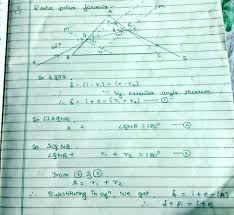 Derive prism formula:
A
In ΔQDR,
δ = (i - r₁) + (e - r₂)
by exterior angle theorem
∴ δ = i + e - (r₁ + r₂) — ①
In □AQNR,
A + ∠QNR = 180° — ②
In ΔQNR
∠QNR + r₁ + r₂ = 180° — ③
∴ From ② & ③
A = r₁ + r₂
∴ Substituting in eqⁿ we get δ = i + e - (A)
∴ δ + A = i + e